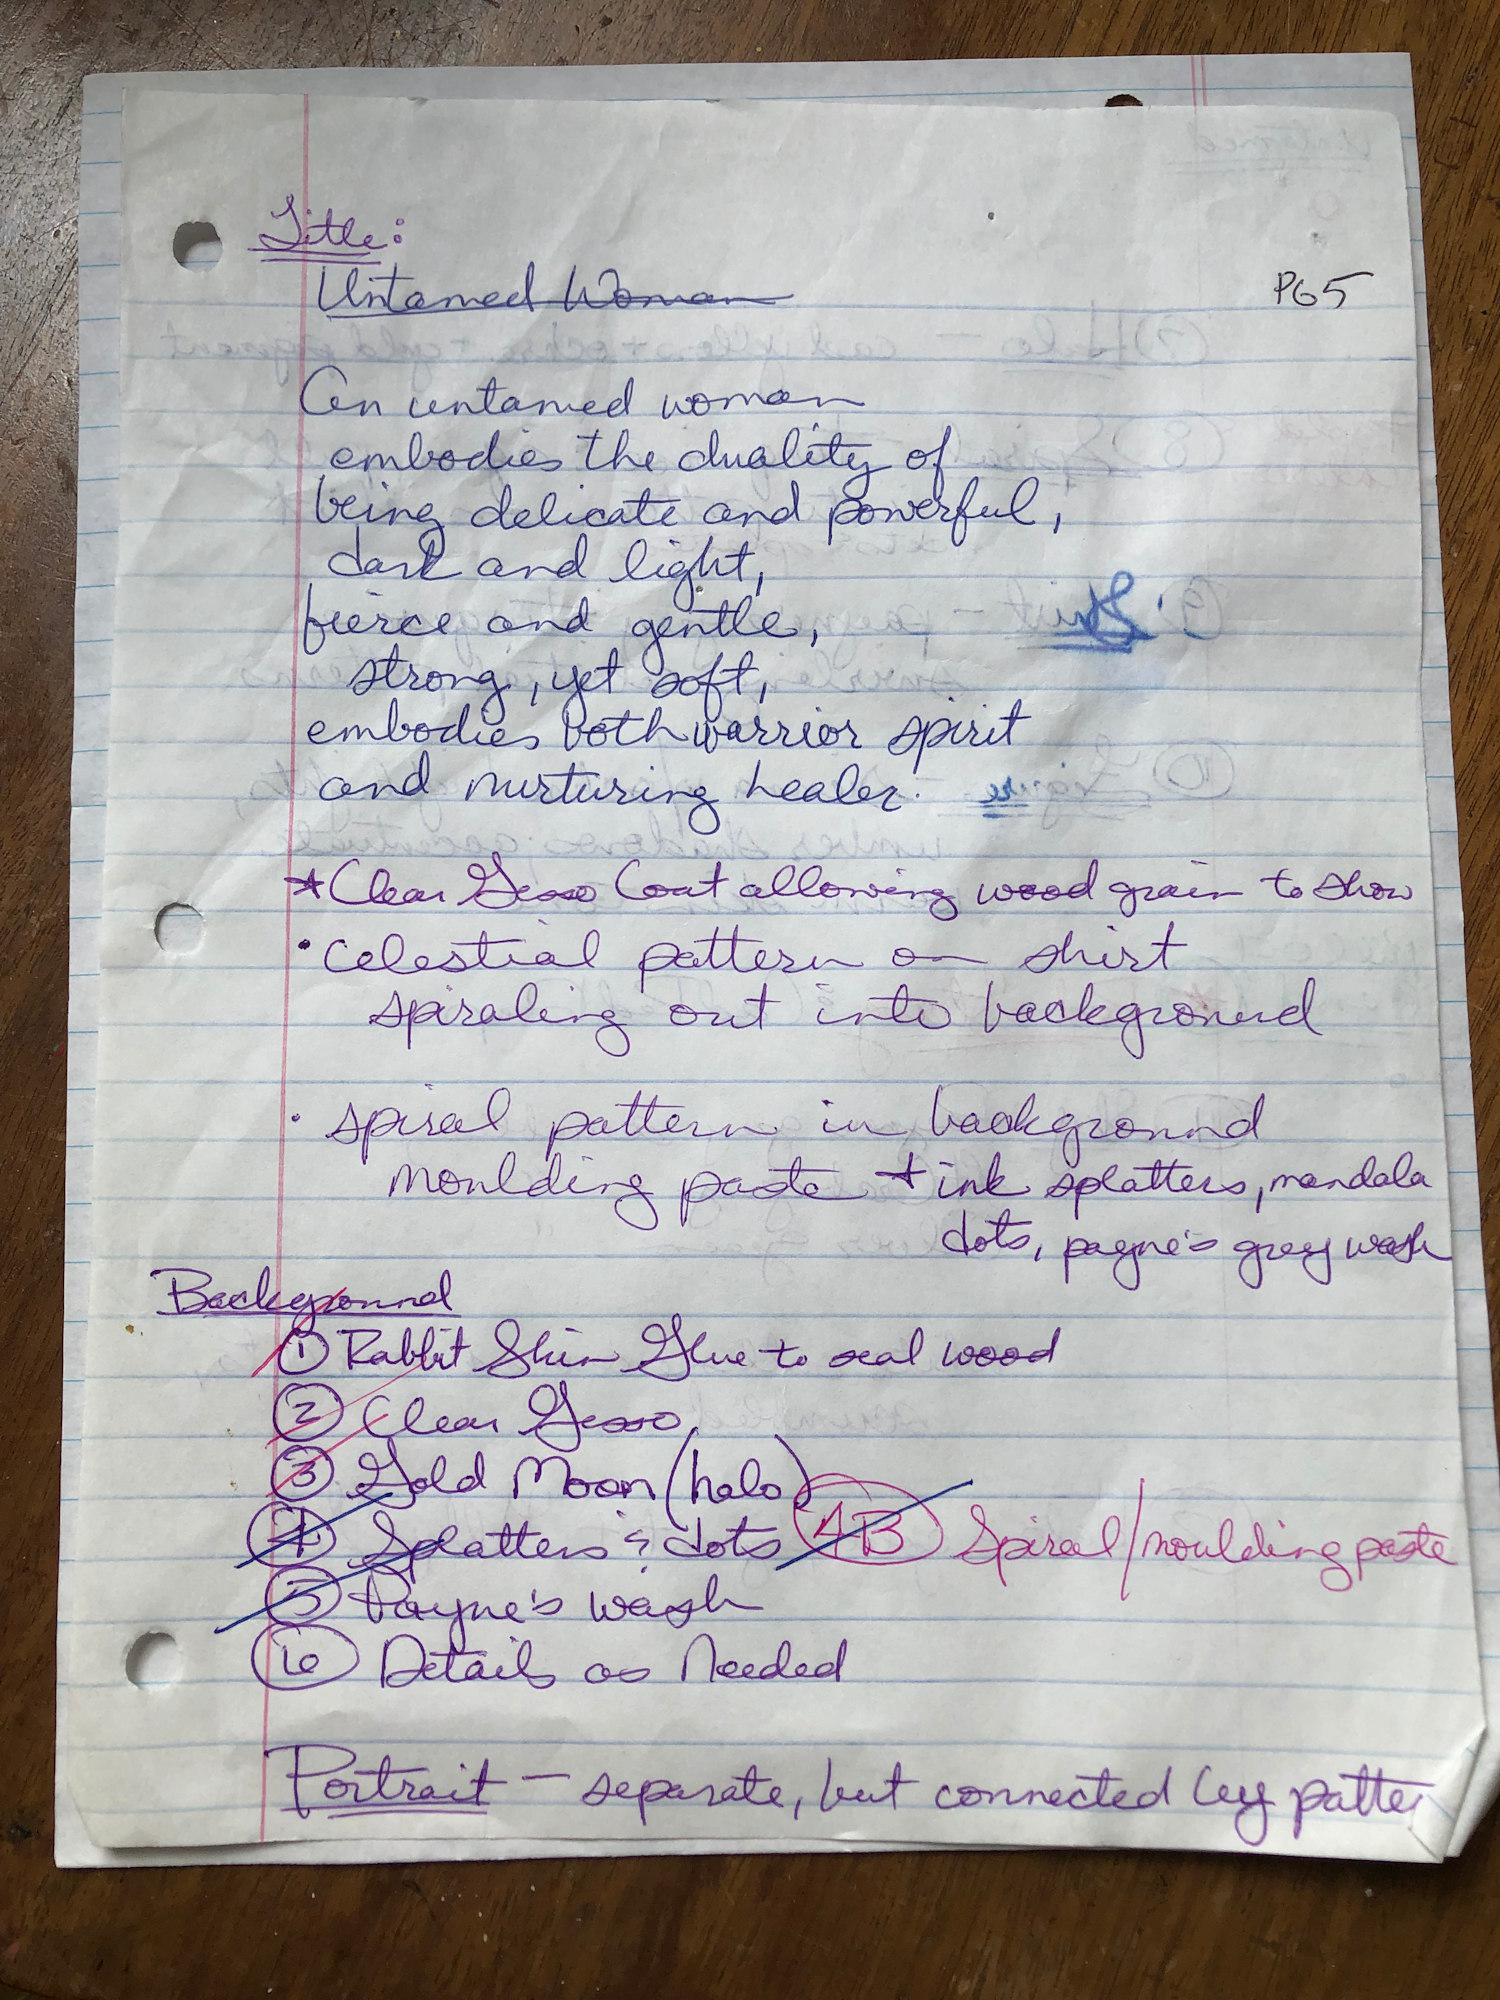 Title:
Untamed Woman
PG5
An untamed woman
embodies the duality of
being delicate and powerful,
dark and light,
fierce and gentle,
strong, yet soft,
embodies both warrior spirit
and nurturing healer.
*Clear Gesso Coat allowing wood grain to show
• celestial pattern on shirt
spiraling out into background
• spiral pattern in background
moulding paste + ink splatters, mandala
dots, payne's grey wash
Background
① Rabbit Skin Glue to seal wood
② Clear Gesso
③ Gold Moon (halo)
④ Splatters & dots 4B Spiral/moulding paste
⑤ Payne's wash
⑥ Details as Needed
Portrait – separate, but connected by patte